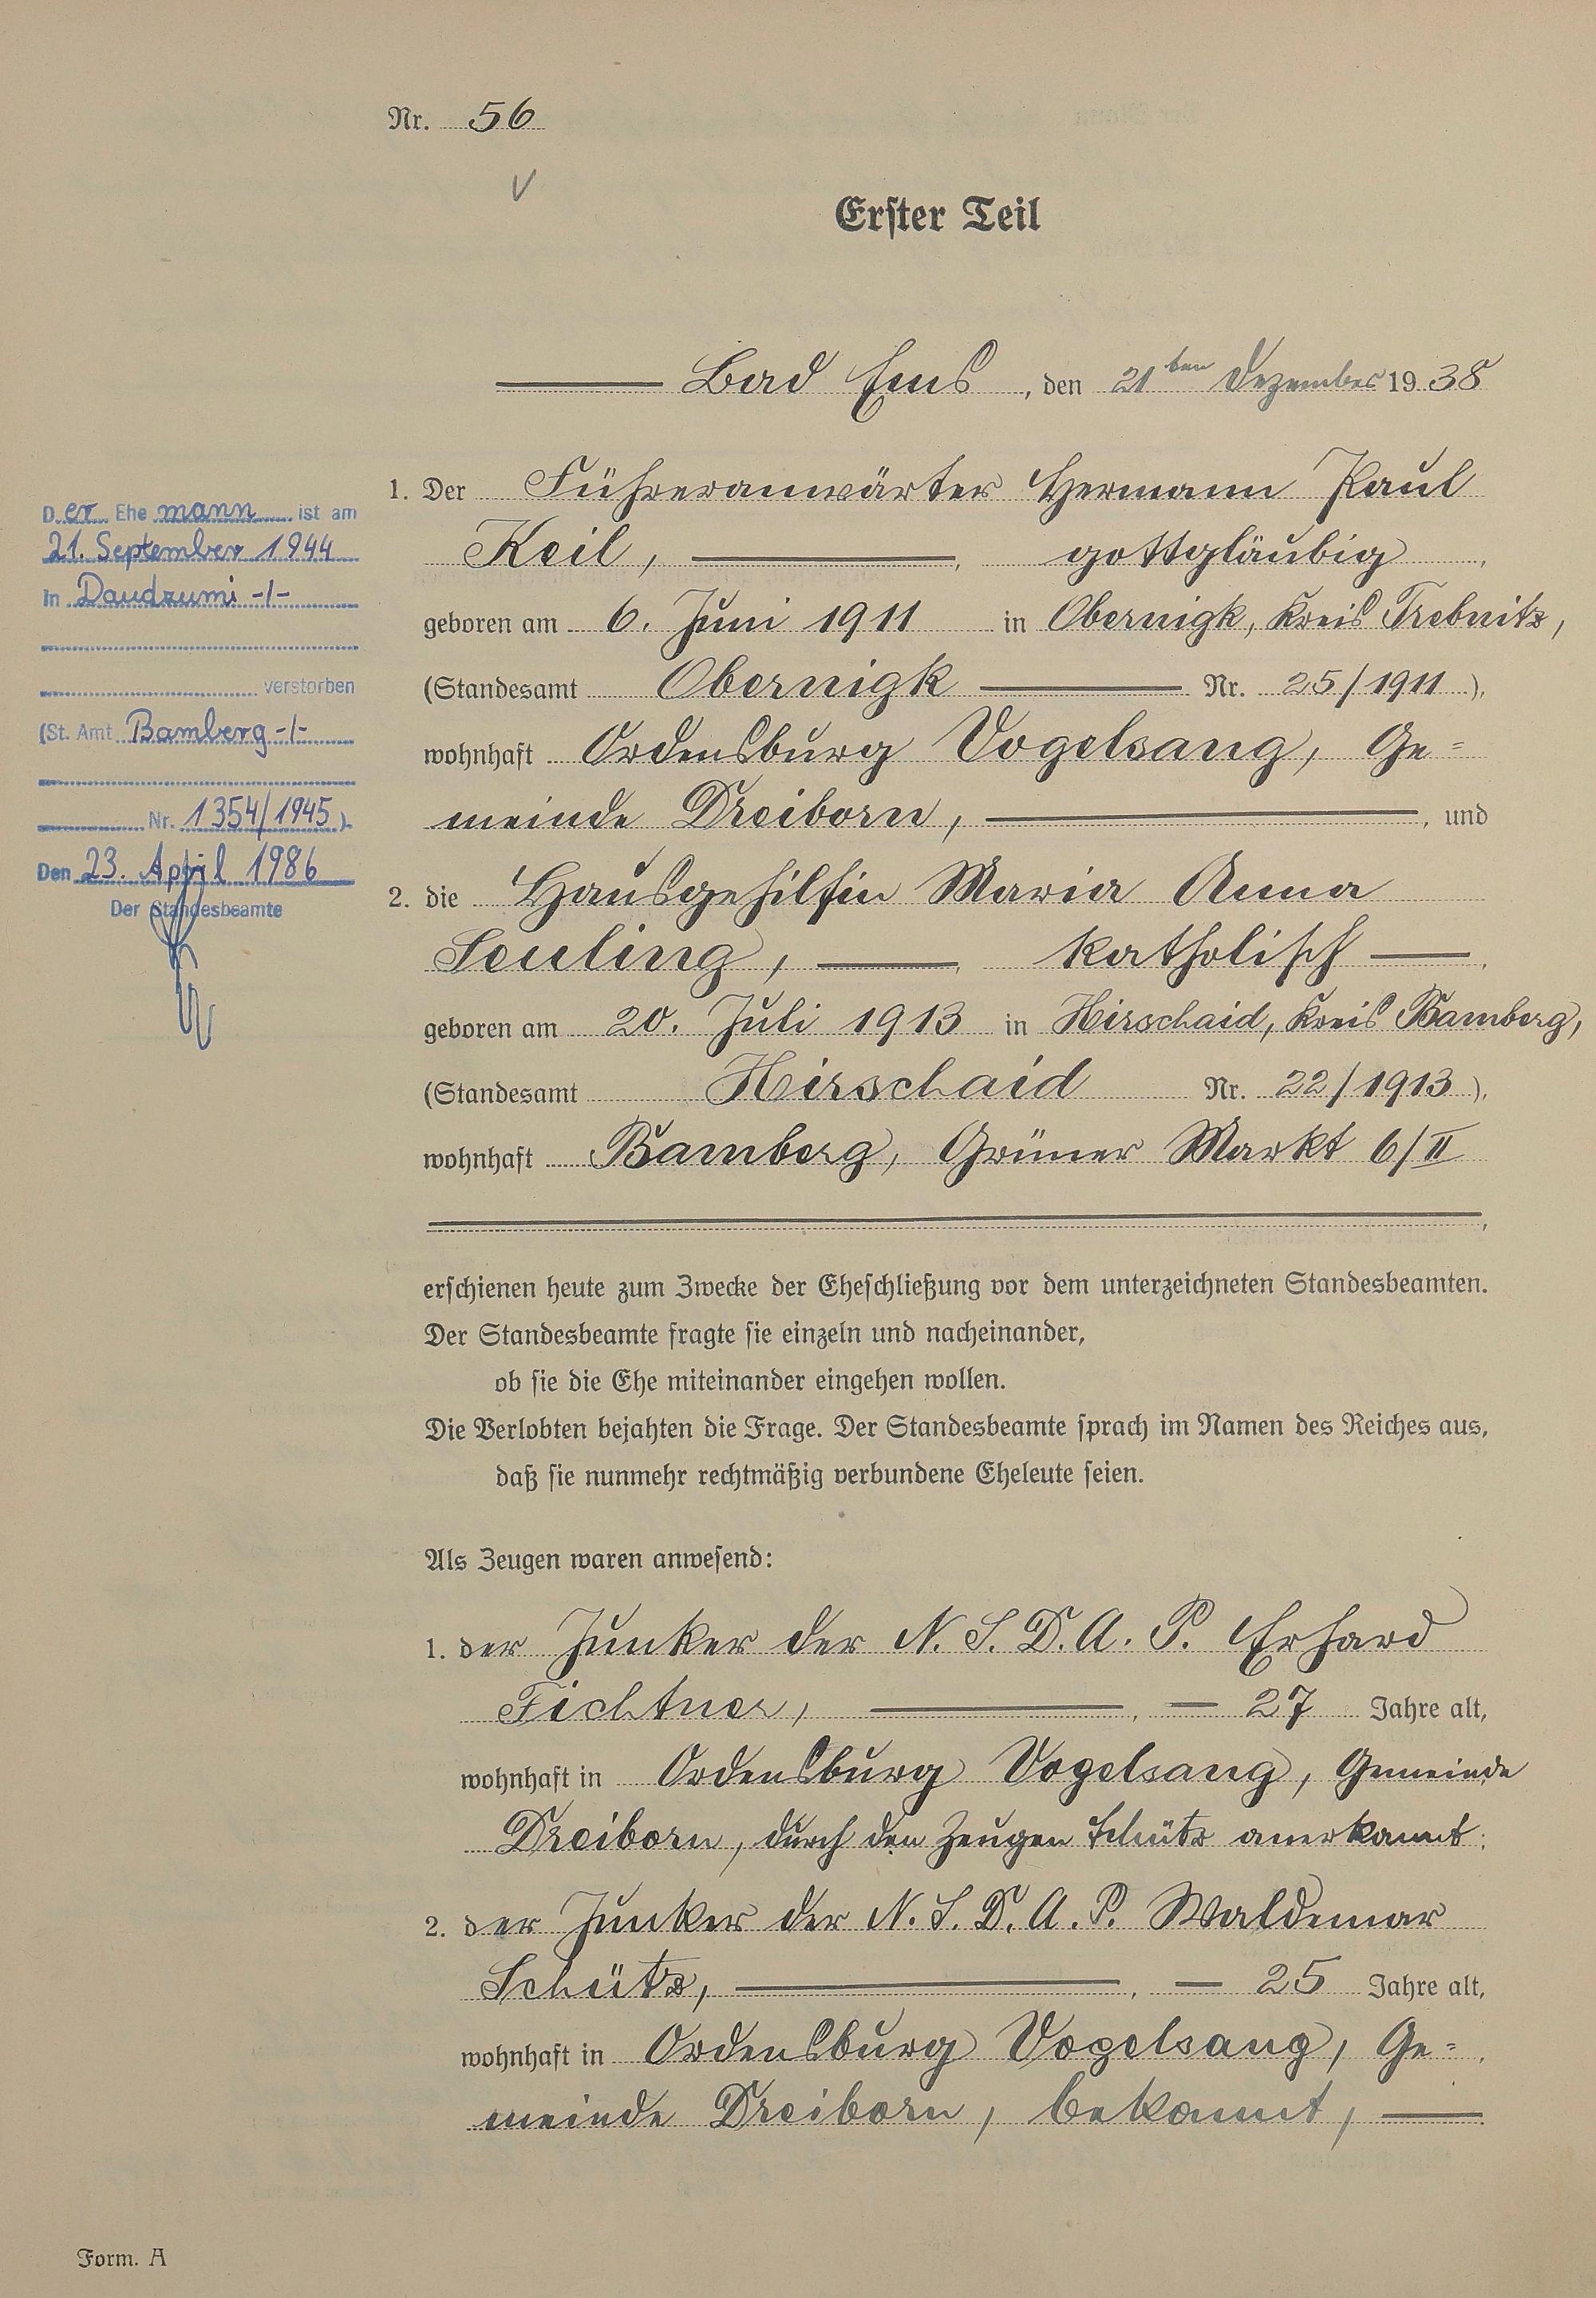 Nr. 56
Erster Teil
Bad Ems, den 21ten Dezember 1938
1. Der Führeranwärter Hermann Paul
Keil, gottgläubig,
geboren am 6. Juni 1911 in Obernigk, Kreis Trebnitz,
(Standesamt Obernigk Nr. 25/1911),
wohnhaft Ordensburg Vogelsang, Ge=
meinde Dreiborn, und
2. die Hausgehilfin Maria Anna
Seuling, katholisch,
geboren am 20. Juli 1913 in Hirschaid, Kreis Bamberg,
(Standesamt Hirschaid Nr. 22/1913),
wohnhaft Bamberg, Grüner Markt 6/II
erschienen heute zum Zwecke der Eheschließung vor dem unterzeichneten Standesbeamten.
Der Standesbeamte fragte sie einzeln und nacheinander,
ob sie die Ehe miteinander eingehen wollen.
Die Verlobten bejahten die Frage. Der Standesbeamte sprach im Namen des Reiches aus,
daß sie nunmehr rechtmäßig verbundene Eheleute seien.
Als Zeugen waren anwesend:
1. der Junker der N.S.D.A.P. Erhard
Fichtner, 27 Jahre alt,
wohnhaft in Ordensburg Vogelsang, Gemeinde
Dreiborn, durch den Zeugen Schütz anerkannt;
2. der Junker der N.S.D.A.P. Waldemar
Schütz, 25 Jahre alt,
wohnhaft in Ordensburg Vogelsang, Ge=
meinde Dreiborn, bekannt,
Der Ehemann ist am
21. September 1944
in Daudzumi -/-
verstorben
(St. Amt Bamberg -/-
Nr. 1354/1945).
Den 23. April 1986
Der Standesbeamte
Form. A